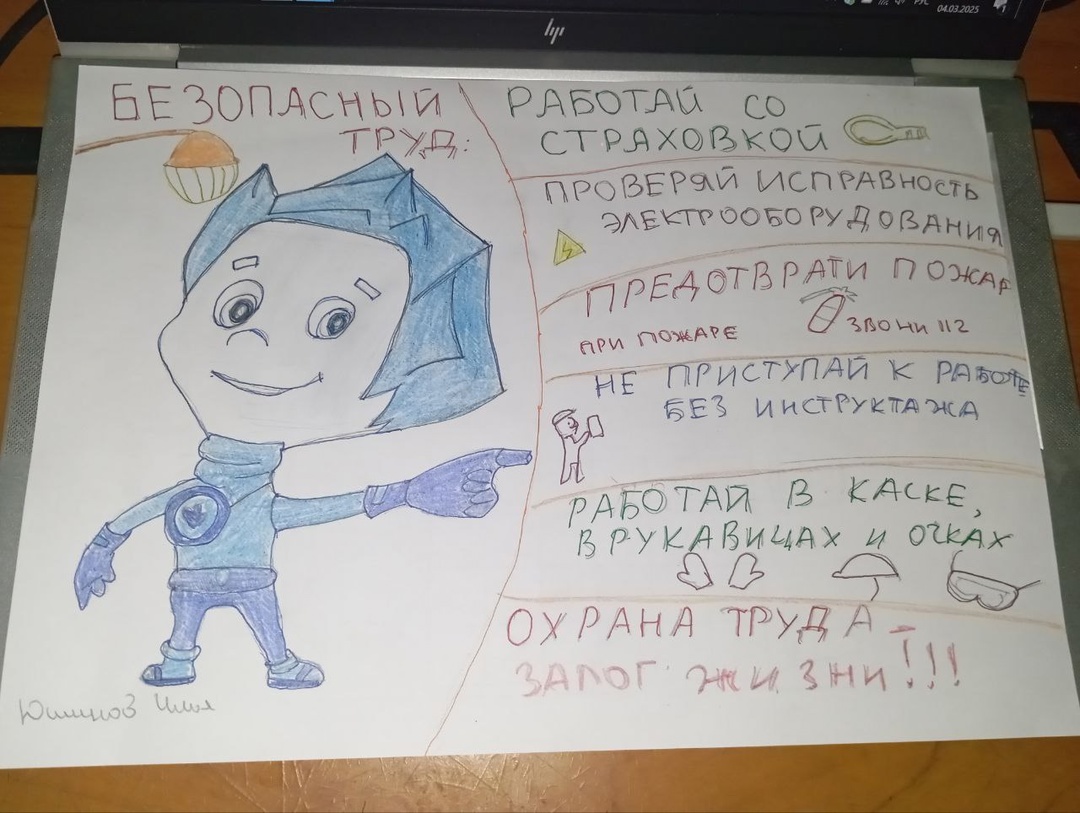 hp
РУС
04.03.2025
БЕЗОПАСНЫЙ
ТРУД:
РАБОТАЙ СО
СТРАХОВКОЙ
ПРОВЕРЯЙ ИСПРАВНОСТЬ
ЭЛЕКТРООБОРУДОВАНИЯ
ПРЕДОТВРАТИ ПОЖАР
ПРИ ПОЖАРЕ ЗВОНИ 112
НЕ ПРИСТУПАЙ К РАБОТЕ
БЕЗ ИНСТРУКТАЖА
РАБОТАЙ В КАСКЕ,
В РУКАВИЦАХ И ОЧКАХ
ОХРАНА ТРУДА –
ЗАЛОГ ЖИЗНИ!!!
Илья